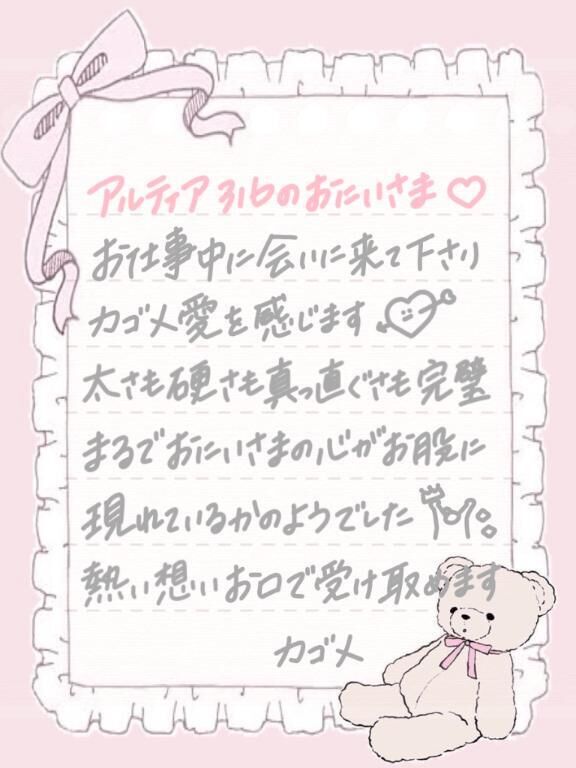 アルティア316のおにいさま♡
お仕事中に会いに来て下さり
カゴメ愛を感じます
太さも硬さも真っ直ぐさも完璧
まるでおにいさまの心がお股に
現れているかのようでした
熱い想いお口で受け取めます
カゴメ